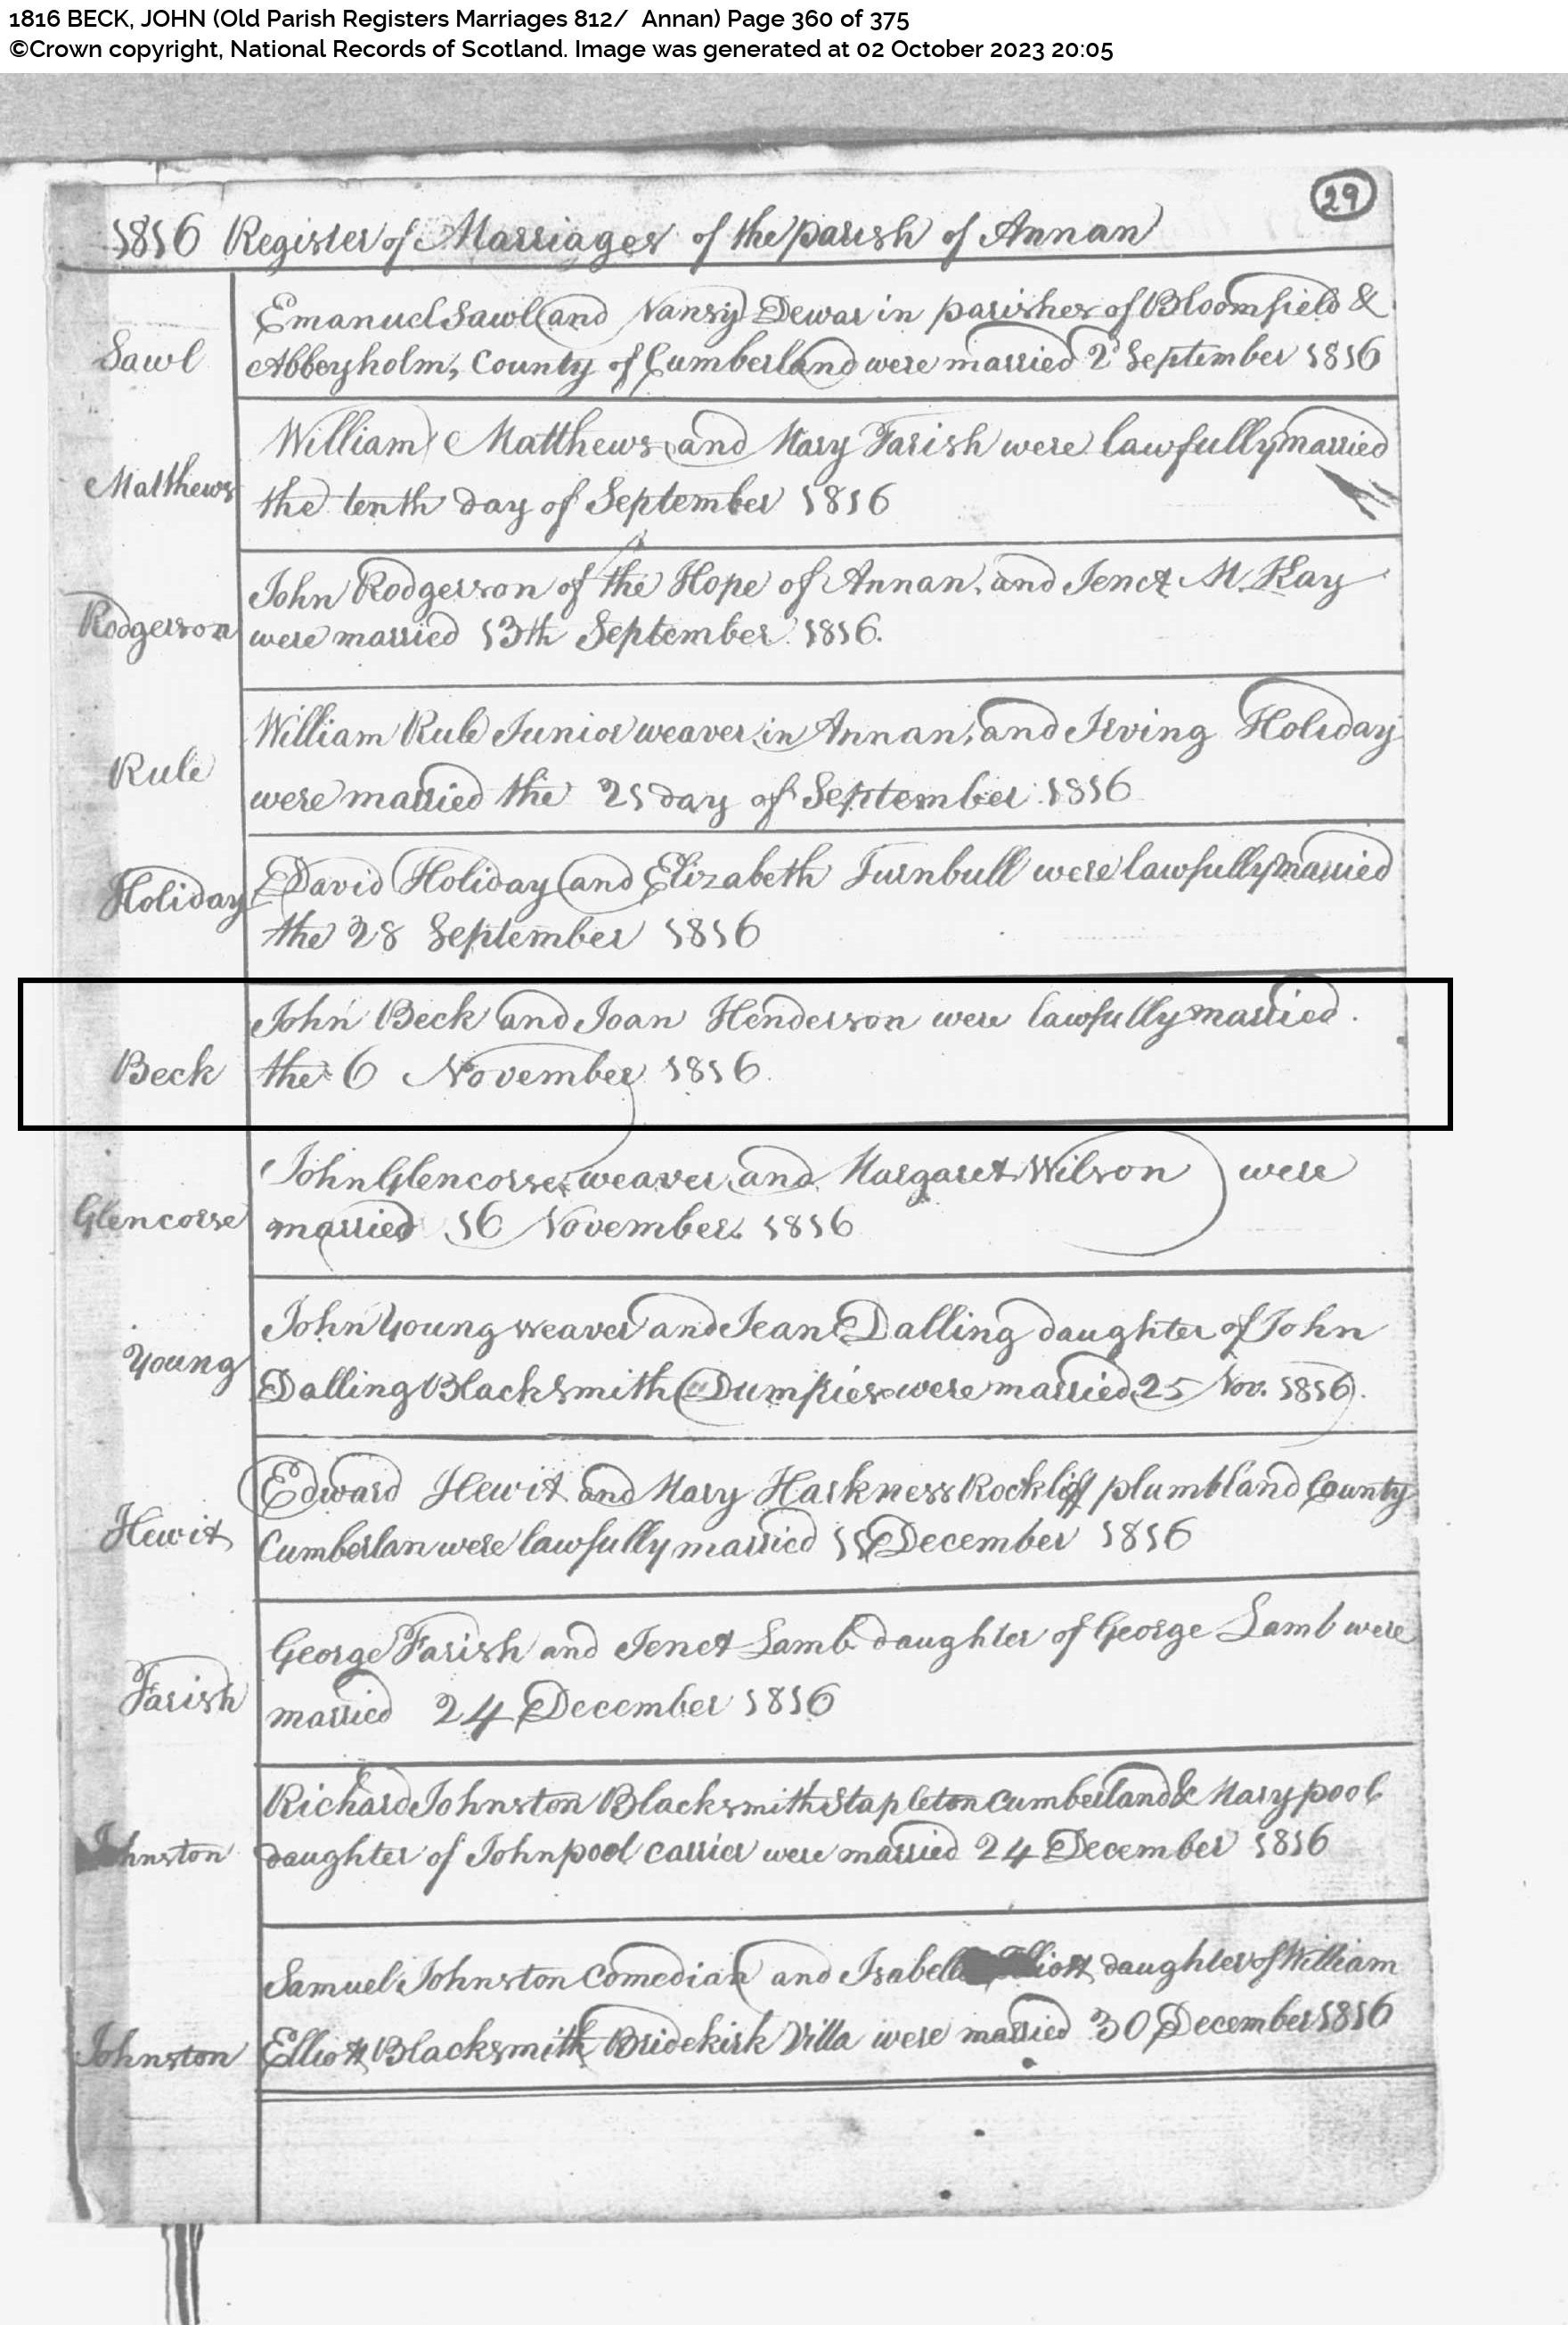 1816 BECK, JOHN (Old Parish Registers Marriages 812/ Annan) Page 360 of 375
©Crown copyright, National Records of Scotland. Image was generated at 02 October 2023 20:05
29
1816 Register of Marriages of the parish of Annan
Emanuel Sawl and Nansy Dewar in parishes of Bloomfield &
Sawl
Abbeyholm, County of Cumberland were married 2d September 1816
William Matthews and Mary Farish were lawfully married
Matthews
the tenth day of September 1816
John Rodgerson of the Hope of Annan, and Jenet M. Kay
Rodgerson
were married 13th September 1816.
William Rule Junior weaver in Annan, and Irving Holiday
Rule
were married the 21 day of September 1816
David Holiday and Elizabeth Turnbull were lawfully married
Holiday
the 28 September 1816
John Beck and Joan Henderson were lawfully married.
Beck
the 6 November 1816.
John Glencorse, weaver, and Margaret Wilson were
Glencorse
married 16 November. 1816
John Young weaver and Jean Dalling daughter of John
Young
Dalling Blacksmith Dumfries were married 25 Nov. 1816.
Edward Hewit and Mary Harkness Rockliff plumbland County
Hewit
Cumberlan were lawfully married 11 December 1816
George Farish and Jenet Lamb daughter of George Lamb were
Farish
married 24 December 1816
Richard Johnston Blacksmith Stapleton Cumberland & Mary pool
Johnston
daughter of John pool carrier were married 24 December 1816
Samuel Johnston Comedian and Isabella Elliott daughter of William
Johnston
Elliott Blacksmith Bridekirk Villa were married 30 December 1816